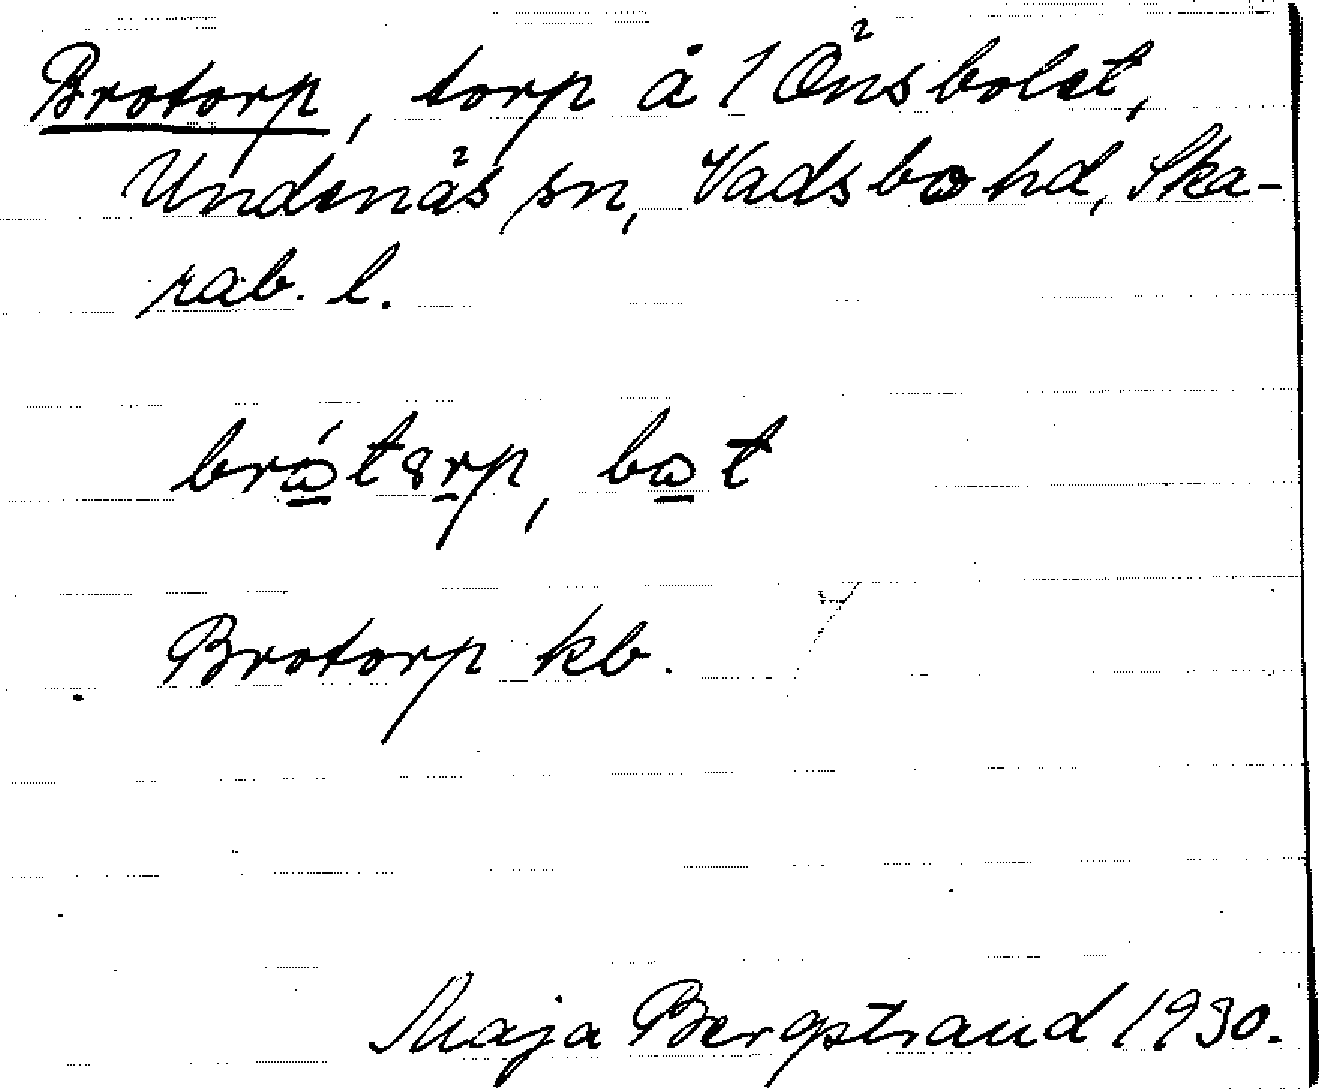 Brotorp, torp å 1 Önsbolet,
Undenäs sn, Vadsbo hd, Ska-
rab. l.
Brotorp kb.
Maja Bergstrand 1930.